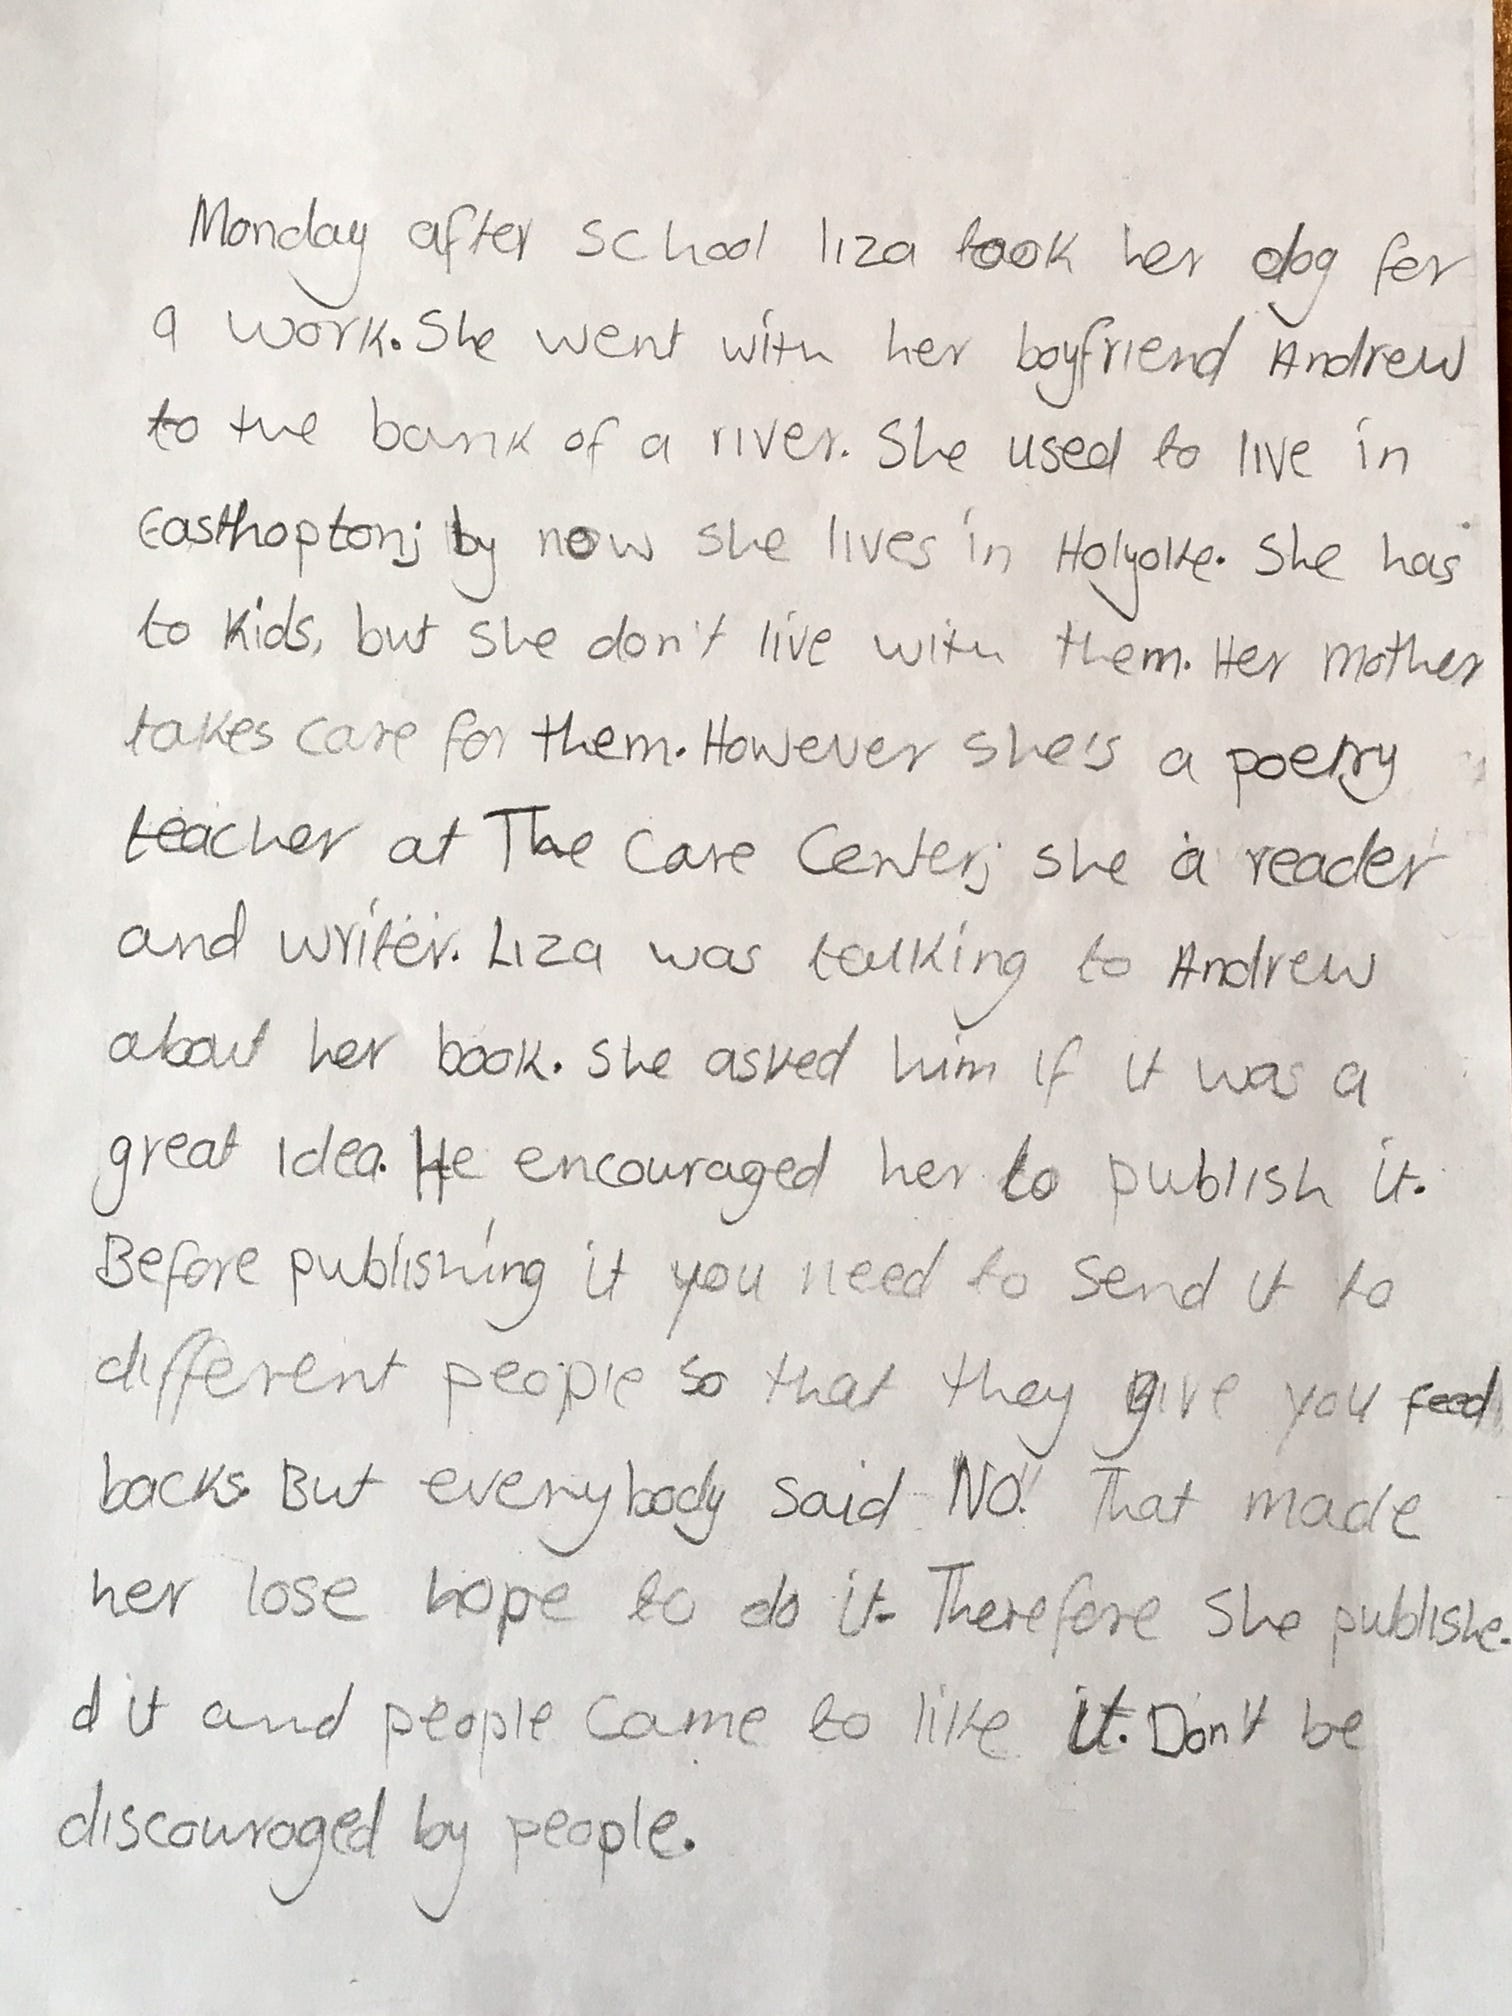 Monday after school liza took her dog for
a work. She went with her boyfriend Andrew
to the bank of a river. She used to live in
Easthopton; by now she lives in Holyoke. She has
to kids, but she don't live with them. Her mother
takes care for them. However she's a poetry
teacher at The Care Center; she a reader
and writer. Liza was talking to Andrew
about her book. She asked him if it was a
great idea. He encouraged her to publish it.
Before publishing it you need to send it to
different people so that they give you feed
backs. But everybody said NO! That made
her lose hope to do it. Therefore she publishe-
d it and people came to like it. Don't be
discouraged by people.